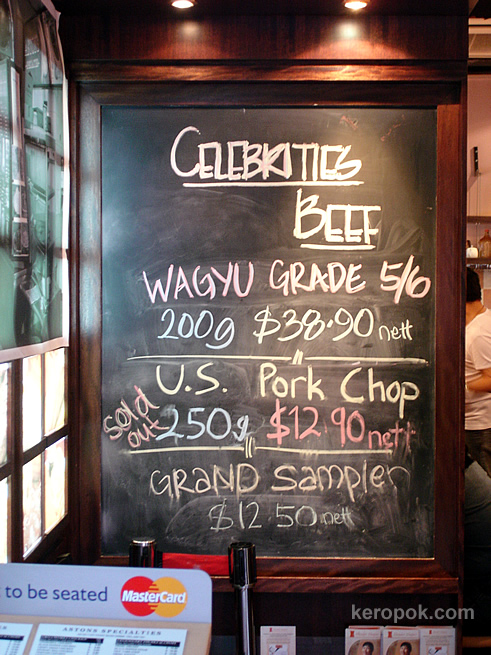 CELEBRITIES
BEEF
WAGYU GRADE 5/6
200g $38.90 nett
U.S. Pork Chop
sold out
250g $12.90 nett
GRAND Sampler
$12 50 nett
to be seated MasterCard
ASTONS SPECIALTIES
keropok.com